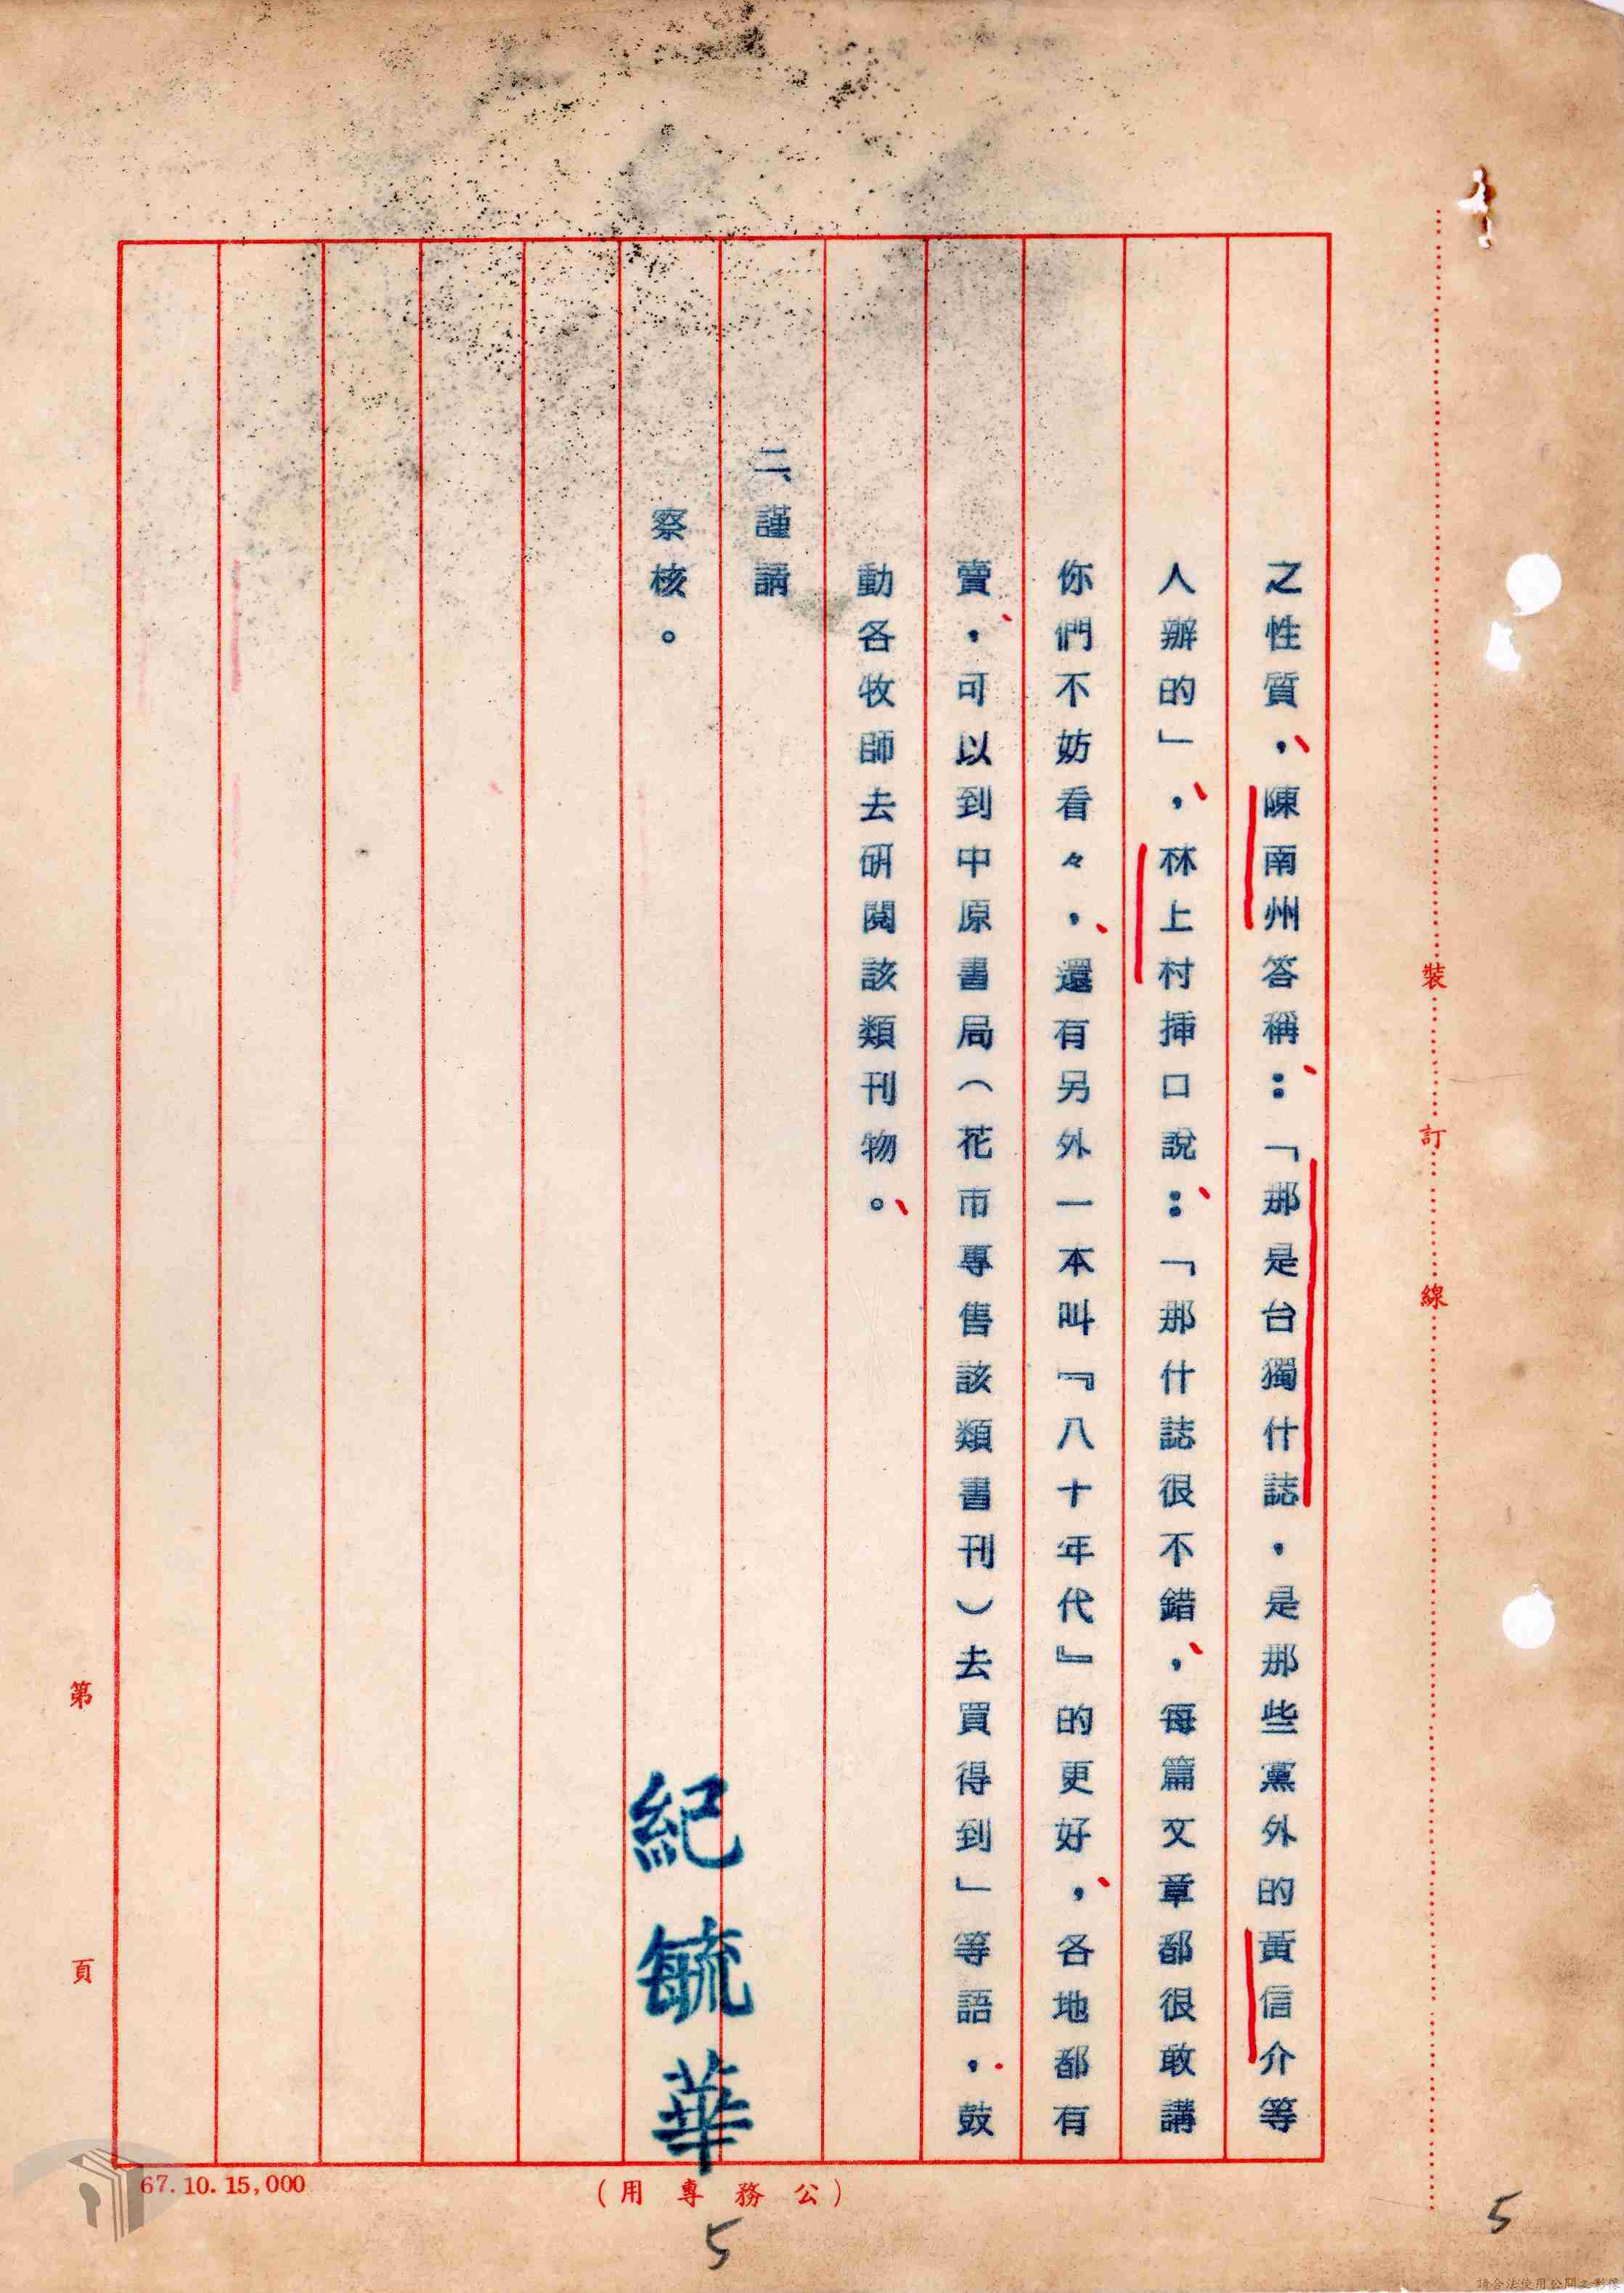 之性質，陳南州答稱：「那是台獨什誌，是那些黨外的黃信介等
人辦的」，林上村挿口說：「那什誌很不錯，每篇文章都很敢講
你們不妨看々，還有另外一本叫『八十年代』的更好，各地都有
賣，可以到中原書局（花市專售該類書刊）去買得到」等語，鼓
動各牧師去研閱該類刊物。
二、謹請
察核。
紀毓華
裝
訂
線
第
頁
67.10.15,000
（公務專用）
5
5
請合法使用公開之影像